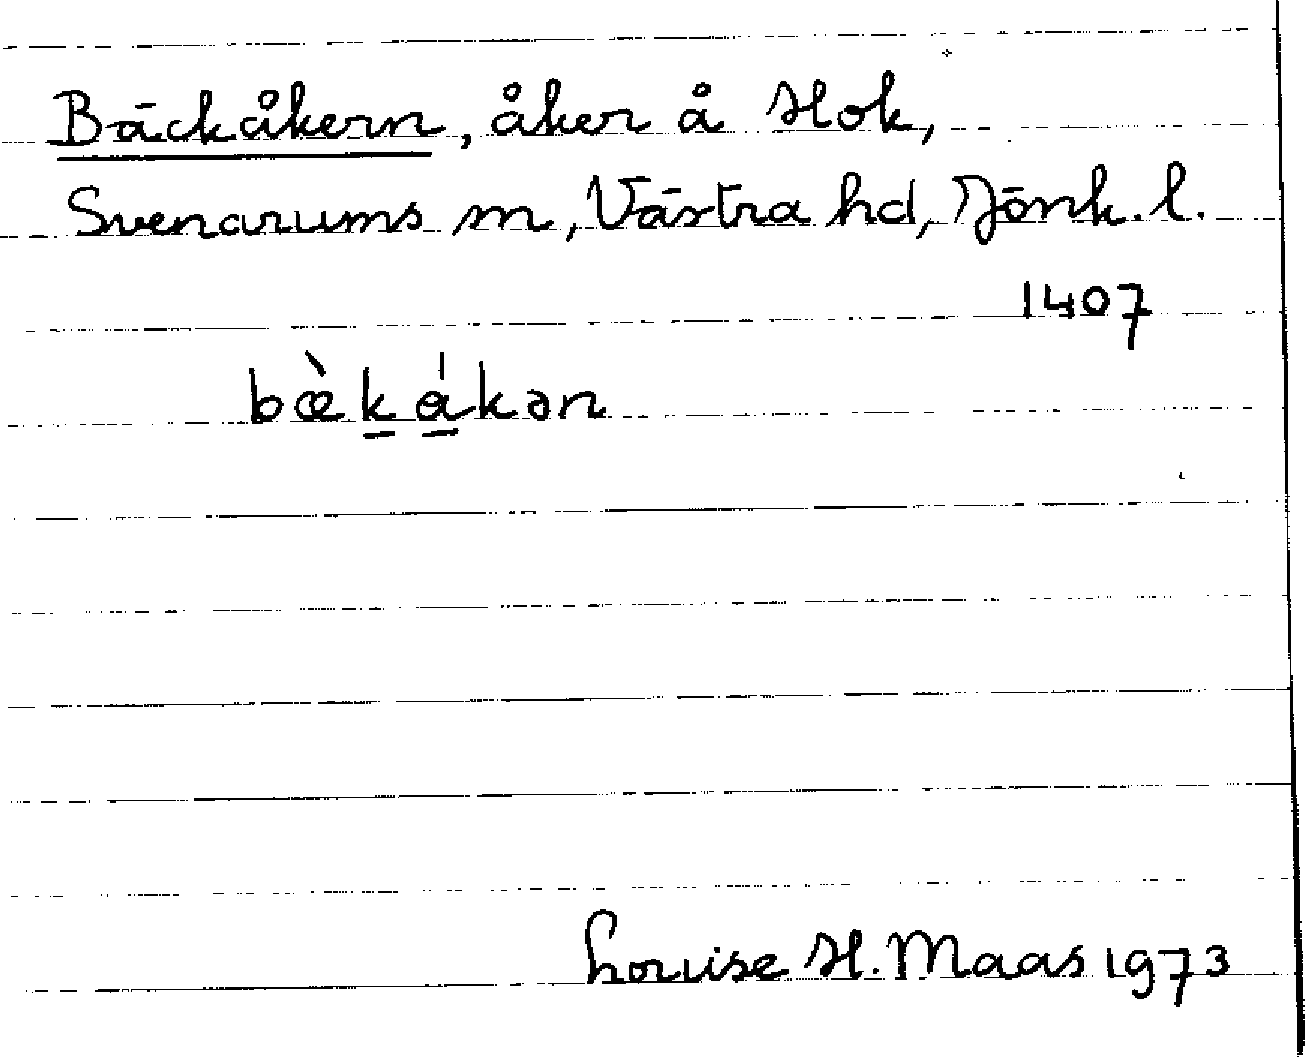 Bäckåkern, åker å Hok,
Svenarums sn, Västra hd, Jönk. l.
1407
bæ̀k̲á̲kən
Louise H. Maas 1973